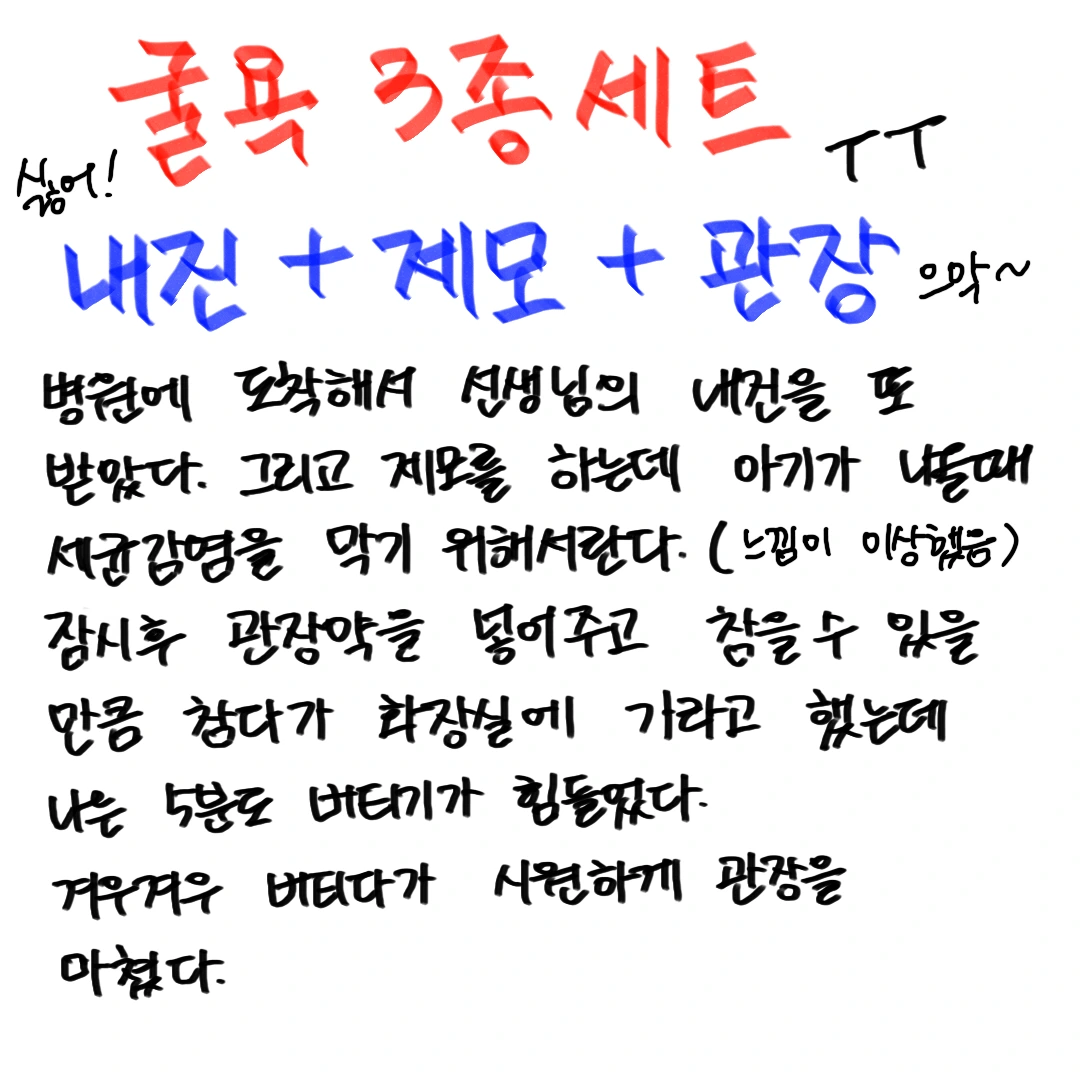 굴욕 3종세트
ㅜㅜ
싫어!
내진 + 제모 + 관장
으악~
병원에 도착해서 선생님의 내진을 또
받았다. 그리고 제모를 하는데 아기가 나올때
세균감염을 막기 위해서란다. (느낌이 이상했음)
잠시후 관장약을 넣어주고 참을수 있을
만큼 참다가 화장실에 가라고 했는데
나는 5분도 버티기가 힘들었다.
겨우겨우 버티다가 시원하게 관장을
마쳤다.